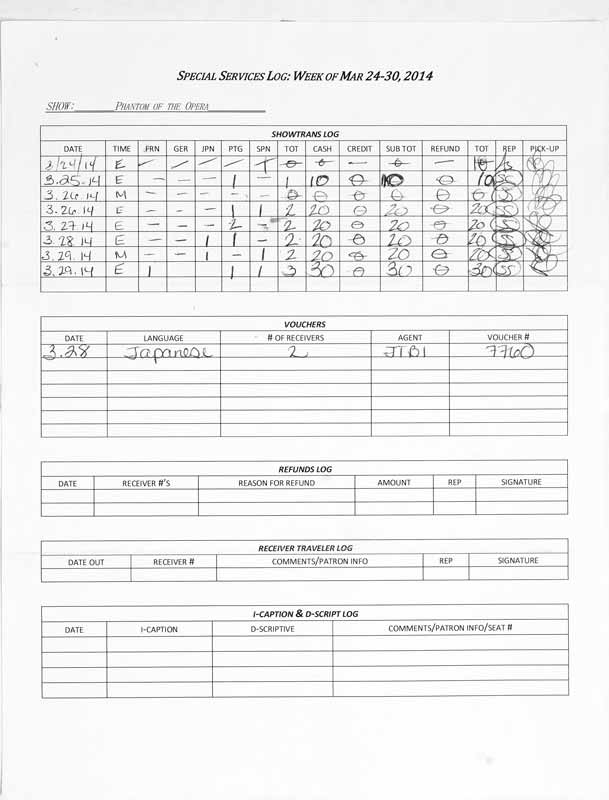 SPECIAL SERVICES LOG: WEEK OF MAR 24-30, 2014
SHOW: PHANTOM OF THE OPERA
SHOWTRANS LOG
DATE TIME FRN GER JPN PTG SPN TOT CASH CREDIT SUB TOT REFUND TOT REP PICK-UP
3/24/14 E — — — — — 0 0 — 0 —
3.25.14 E — — — 1 — 1 10 0 10 0 10
3.26.14 M — — — — — 0 0 0 0 0 0
3.26.14 E — — — 1 1 2 20 0 20 0 20
3.27.14 E — — — 2 — 2 20 0 20 0 20
3.28.14 E — — 1 1 — 2 20 0 20 0 20
3.29.14 M — — 1 — 1 2 20 0 20 0 20
3.29.14 E 1 1 1 3 30 0 30 0 30
VOUCHERS
DATE LANGUAGE # OF RECEIVERS AGENT VOUCHER #
3.28 Japanese 2 JTBI 7760
REFUNDS LOG
DATE RECEIVER #'S REASON FOR REFUND AMOUNT REP SIGNATURE
RECEIVER TRAVELER LOG
DATE OUT RECEIVER # COMMENTS/PATRON INFO REP SIGNATURE
I-CAPTION & D-SCRIPT LOG
DATE I-CAPTION D-SCRIPTIVE COMMENTS/PATRON INFO/SEAT #